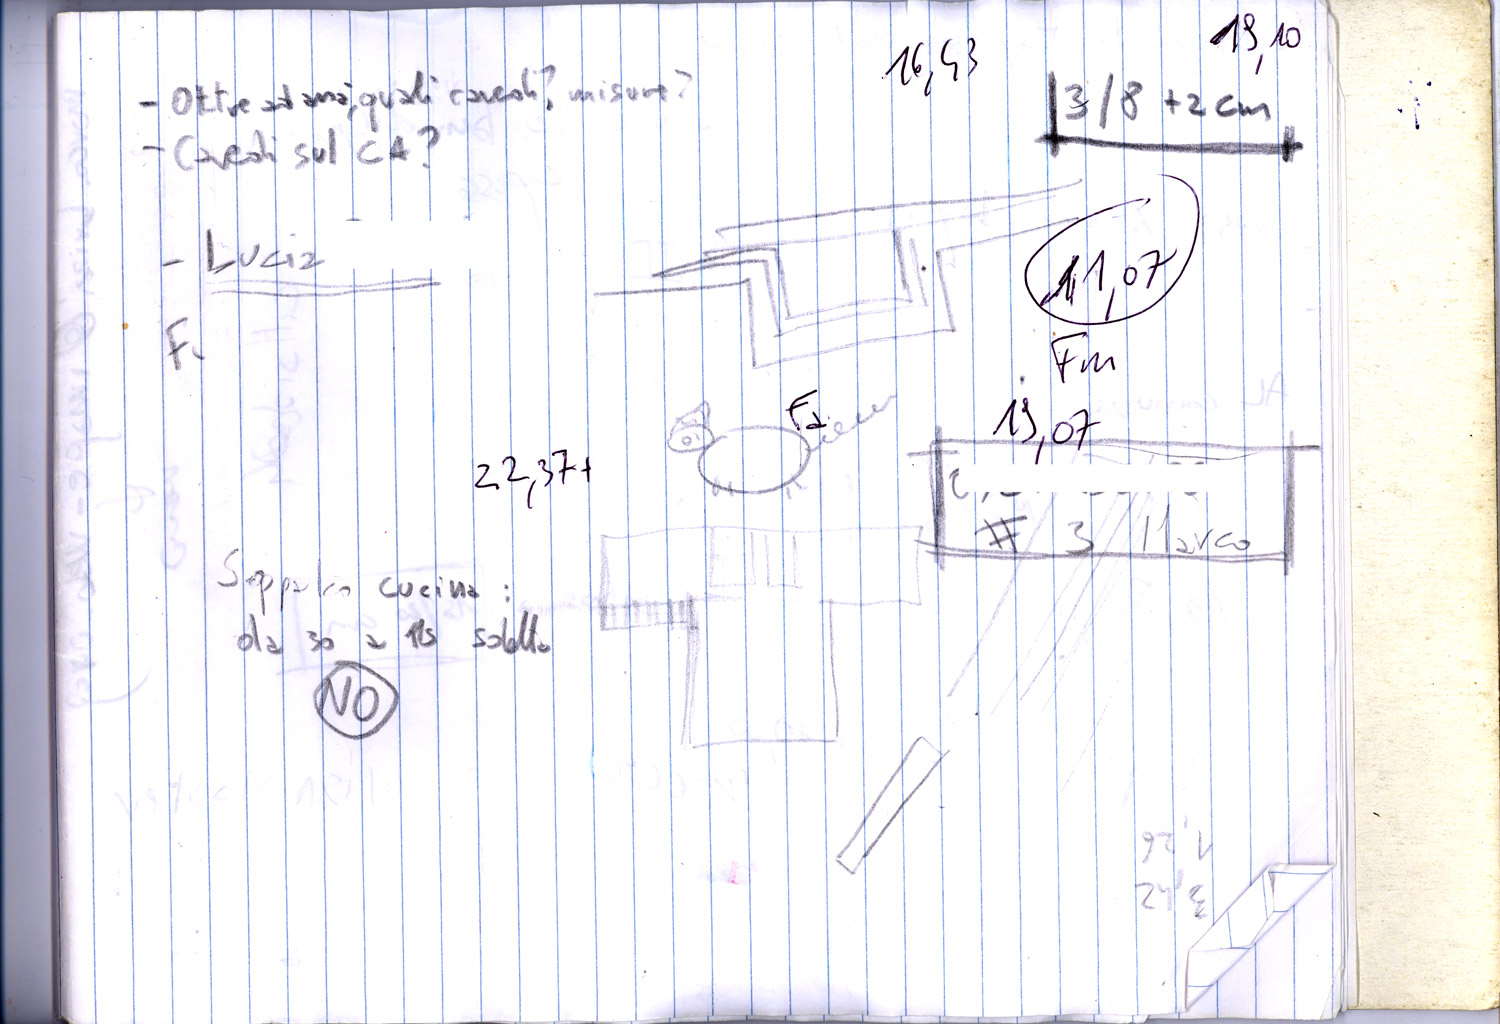 16,43
19,10
- Oltre ad ... quali cavedi? misure?
- Cavedi sul CA?
3/8 +2 cm
- Lucia
11,07
Fm
Fa
19,07
22,37+
# 3 Marco
Soppalco cucina :
da 30 a 15 soletta
NO